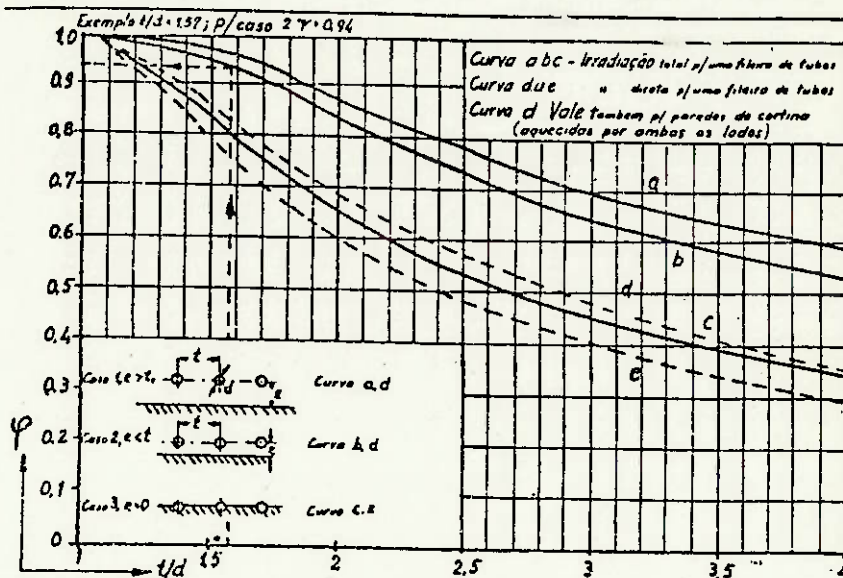 Exemplo t/d = 1,57; p/caso 2 φ = 0,94
Curva abc - Irradiação total p/uma fileira de tubos
Curva d u e " direta p/uma fileira de tubos
Curva d Vale tambem p/ paredes de cortina
(aquecidas por ambos os lados)
1,0
0,9
0,8
0,7
0,6
0,5
0,4
0,3
0,2
0,1
0
φ
a
b
d
c
e
t
Caso 1, e > t
d
e
Curva a, d
t
Caso 2, e < t
e
Curva b, d
Caso 3, e = 0
Curva c, e
t/d
1,5
2
2,5
3
3,5
4